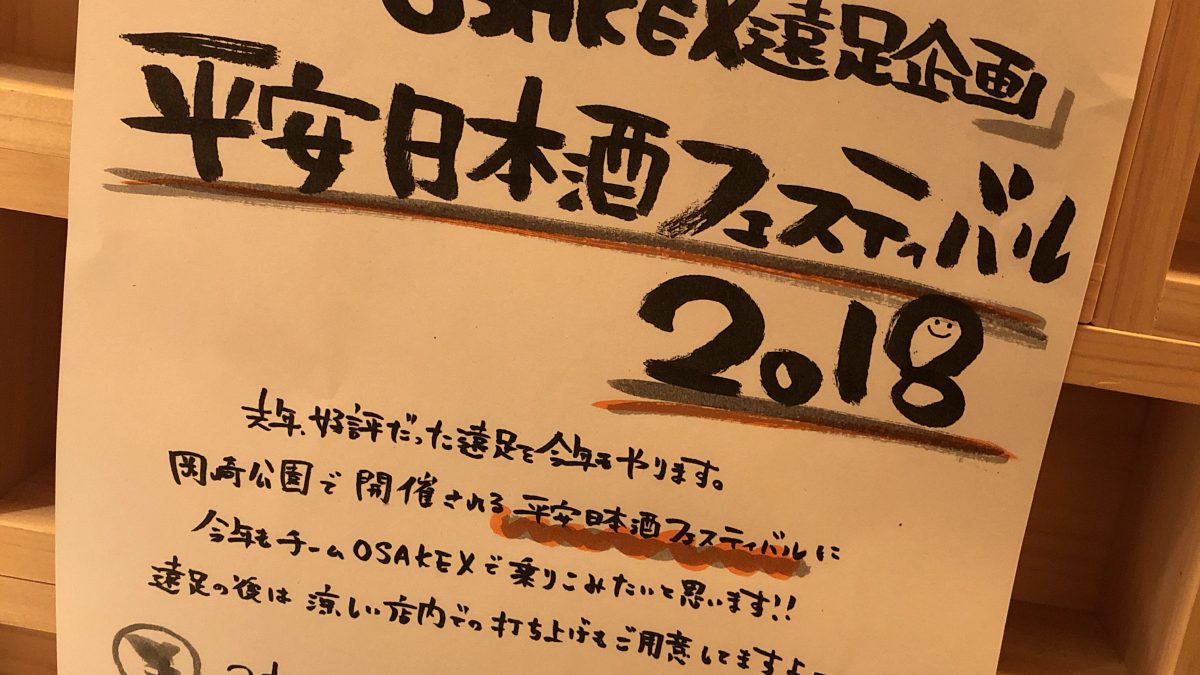 OSAKEX遠足企画」
平安日本酒フェスティバル
2018
去年、好評だった遠足を今年もやります。
岡崎公園で開催される平安日本酒フェスティバルに
今年もチームOSAKEXで乗りこみたいと思います!!
遠足の後は涼しい店内での打ち上げもご用意してますよー